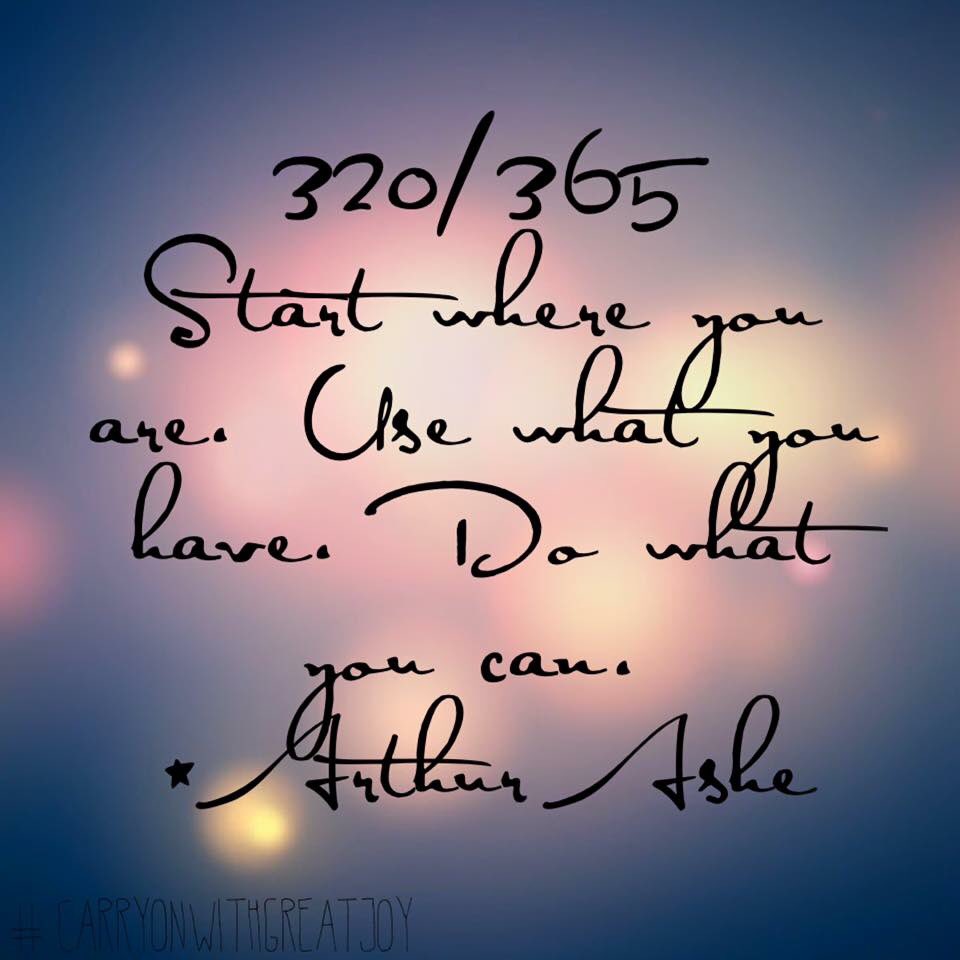 320/365
Start where you
are. Use what you
have. Do what
you can.
★ Arthur Ashe
# CARRYONWITHGREATJOY